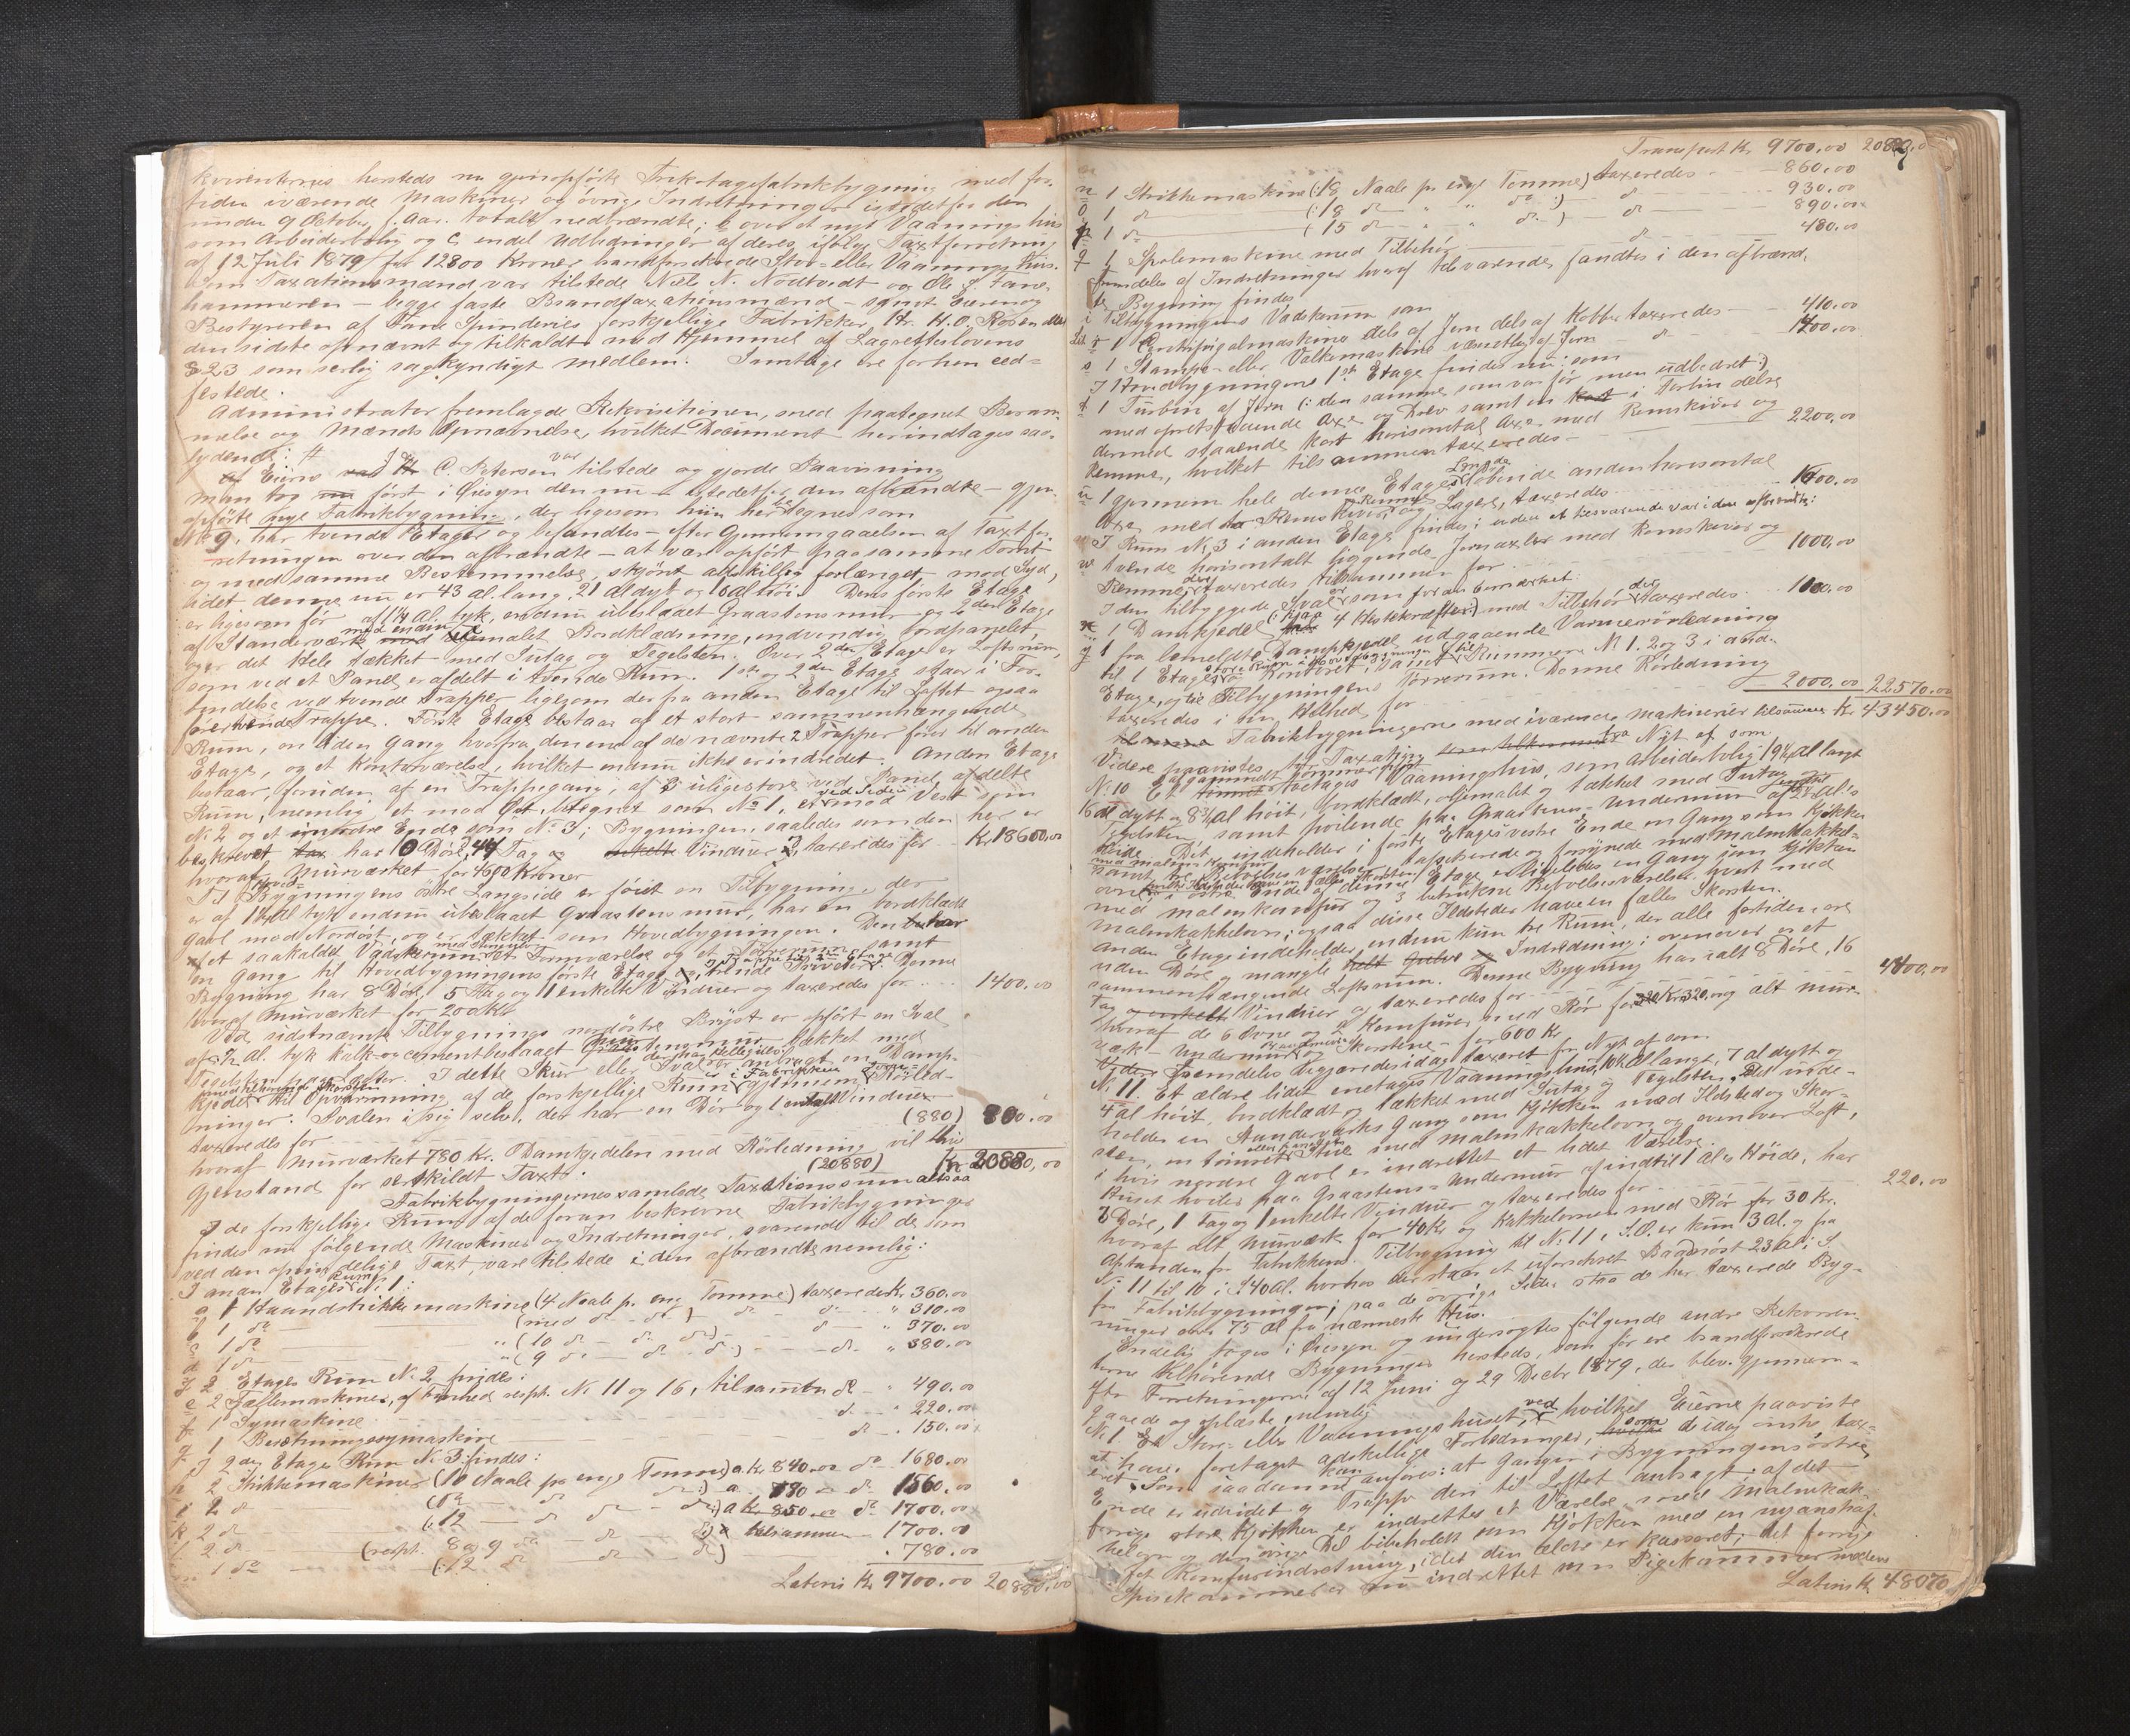 kvirenternes hersteds nu gjenopførte Trikotagefabrikbygning med for-
tiden iværende Maskiner og øvrige Indretninger istedetfor den
under 9 October f. Aar. totalt nedbrændte; b over et nyt Vaaningshus
som Arbeiderbolig og c, endel Udbedringer af deres, ifølge Taxtforretning
af 12 Juli 1879 for 12800 Kroner brandforsikrede Stor- eller Vaaningshus.
Som Taxationsmænd var tilstede Niels N. Nødtvedt og Ole S. Fane-
hammeren – begge faste Brandtaxationsmænd – samt Eieren og
Bestyreren af Fane Spinderies forskjellige Fabrikker Hr. H. O.
den sidste opnævnt og tilkaldt med Hjemmel af Lagretteslovens
§ 23 som særlig sagkyndigt medlem. Samtlige ere forhen eed-
fæstede.
Administrator fremlagde Rekvisitionen, med paategnet Beram-
melse og Mænds Opnævnelse, hvilket Document herindtages saa-
lydende: #
Af Eierne C. Petersen var tilstede og gjorde Paavisning
Man tog først i Øiesyn den nu – istedetfor den afbrændte – gjen-
opførte nye Fabrikbygning, der ligesom hiin her betegnes som
No 9, har tvende Etager og befandtes – efter Gjennemgaaelsen af Taxtfor-
retningen over den afbrændte – at være opført paa samme Tomt
og med samme Bestemmelse, skjønt adskillig forlænget mod Syd,
idet denne nu er 43 al. lang, 21 al dyb og 10 al høi. Dens første Etage
er ligesom før af 1¼ Al. tyk, endnu ubeslaaet Graastensmur og 2den Etage
af Standerværk med endnu umalet Bordklædning, indvendig bordpanelet,
og er det Hele tækket med Sutag og Tegelsten. Over 2den Etage er Loftsrum,
som ved et Panel er afdelt i tvende Rum. 1ste og 2den Etage staar i For-
bindelse ved tvende Trapper ligesom der fra anden Etage til Loftet ogsaa
fører tvende Trapper. Første Etage bestaar af et stort sammenhængende
Rum, en liden Gang hvorfra den ene af de nævnte 2 Trapper fører til anden
Etage, og et Kontorværelse, hvilket endnu ikke er indredet. Anden Etage
bestaar, foruden af en Trappegang, af 3 uligestore ved Panel afdelte
Rum, nemlig et mod Øst, betegnet som No 1, et ved Siden mod Vest som
No 2 og et i nordre Ende som No 3; Bygningen, saaledes som den her er
beskrevet har 10 Døre, 44 Fag Vinduer, taxeredes for Kr. 18600,00
hvoraf Murværket for 4600 Kroner
Til Hovedbygningens østre Langside er føiet en Tilbygning, der
er af 1¼ Al tyk endnu ubeslaaet Graastensmur, har en bordklædt
Gavl mod Nordøst, og er tækket som Hovedbygningen. Den
et saakaldet Vadskerum, et Tørrerum samt
en Gang til Hovedbygningens første Etage tvende Priveter. Denne
Bygning har 8 Døre, 5 Fag og 1 enkelte Vinduer og taxeredes for 1400.00
hvoraf Murværket for 200 Kr
Ved sidstnævnte Tilbygnings nordøstre Bryst er opført en Sval
af ½ Al. tyk Kalk- og cementbeslaaet tækket med
Tegelsten I dette Skur eller Sval er anbragt en Damp-
kjedel til Opvarmning af de forskjellige Rum i Fabrikken gjennem Rørled-
ninger. Svalen i sig selv, der har en Dør og 1 enkelt Vindue
taxeredes for (880) 800.00
hvoraf Murværket 780 Kr. Dampkjedelen med Rørledning vil blive
Gjenstand for særskildt Taxt. (20880) Kr 20880,00
Fabrikbygningernes samlede Taxationssum altsaa
I de forskjellige Rum af de foran beskrevne Fabrikbygninger
findes nu følgende Maskiner og Indretninger, svarende til de som
ved den oprindelige Taxt, vare tilstede i den afbrændte, nemlig:
I anden Etages Rum No 1:
a 1 Haandstrikkemaskine (4 Naale pr. eng Tomme) taxeredes Kr. 360.00
b 1 do (med do – do) do " 310.00
c 1 do " (10 do – do do) do " 370.00
d 1 do " (9 do – do – do) do " 380.00
I 2 Etages Rum No 2 findes:
e 2 Fællemaskiner, af Finhed respt. No 11 og 16, tilsammen do " 490.00
f 1 Symaskine do " 220.00
g 1 Besætningssymaskine do . 150.00
I 2den Etages Rum No 3 findes:
h 2 Strikkemaskiner (10 Naale pr enge Tomme) a Kr 840.00 do 1680.00
i 2 do (12 do do do:) a 780 do 1560.00
k 2 do (:12 do do do:) a kr 850.00 do 1700.00
l 2 do (respt. 8 og 9 do do do) tilsammen 1700.00
m 1 do (:12 do do do) . 780.00
Lateris Kr 9700.00 20880,00
Transport Kr 9700.00 20880.0
n 1 Strikkemaskine (:18 Naale pr enge Tomme) taxeredes 860.00
o 1 do (:18 do " " do:) do 930.00
p 1 do (15 do " " do:) do 890.00
q 1 Spolemaskine med Tilbehør do 480.00
Fremdeles af Indretninger hvoraf tilsvarende fandtes i den afbrænd-
te Bygning findes
i Tilbygningens Vadskerum som
r 1 Centrifugalmaskine dels af Jern dels af Kobber taxeredes 410.00
s 1 Stampe- eller Valkemaskine væsentlig af Jern do 1400.00
I Hovedbygningens 1ste Etage findes nu: som
t 1 Turbin af Jern (: den samme som var før men udbedret:)
med opretstaaende Axe og Drev samt en i Forbindelse
dermed staaende kort horisontal Axe med Remskiver og
Remme, hvilket tilsammen taxeredes 2200,00
u 1 gjennem hele denne Etages Længde løbende anden horisontal
Axe med Remskiver, Remme og Lagere, taxeredes 1600.00
v I Rum No 3 i anden Etage findes i uden et tilsvarende var i den afbrændte:
w tvende horisontalt liggende Jernaxler med Remskiver og
Remme, der taxeredes tilsammen for 1000,00
I den tilbyggede Sval er som foran bemærket
x 1 Dampkjedel (: paa 4 Hestekræfter:) med Tilbehør, der taxeredes 1100.00
y 1 fra bemeldte Dampkjedel udgaaende Varmerørledning
til 1 Etages Kontoret, samt Rummene No 1. 2 og 3 i anden
Etage, og til Tilbygningens Tørrerum. Denne Rørledning
taxeredes i sin Helhed for 2000.00 22570.00
Fabrikbygningerne med iværende Maskinerier tilsammen Kr 43450.00
Videre paavistes til Taxation fra Nyt af som
No 10 Et toetages Vaaningshus, som arbeiderbolig 19¼ al langt
16 al dybt og 8¾ Al høit, bordklædt, oljemalet og tækket med Sutag
Tegelsten, samt hvilende paa Graastens-Undermur af 2½ Al.s
Høide. Det indeholder i første Etages vestre Ende en Gang som Kjøkken
samt tre Beboelsesværelser, tapetserede og forsynede med Malmkakkel-
ovne; i østre Ende af denne Etage er ligeledes en Gang som Kjøkken
med malmkomfur og 3 betrukne Beboelsesværelser, hvert med
Malmkakkelovn; ogsaa disse Ildsteder have en fælles Skorsten.
Anden Etage indeholder endnu kun tre Rum, der alle fortiden ere
uden Døre og mangle Indredning; ovenover er et
sammenhængende Loftsrum. Denne Bygning har ialt 8 Døre, 16
Fag Vinduer og taxeredes for 4400,00
hvoraf de 6 Ovne og 2 Komfurer med Rør for Kr 320, og alt Mur-
værk – Undermur og Skorstene – for 600 Kr
Fremdeles begjæredes idag taxeret fra Nyt af som
No 11. Et ældre lidet enetages Vaaningshus, 10½ al langt, 7 al dybt og
4 al høit, bordklædt og tækket med Sutag og Tegelsten. Det inde-
holder en Standerværks Gang som Kjøkken med Ildsted og Skor-
sten, en tømret Stue med Malmkakkelovn og ovenover Loft,
i hvis nordre Gavl er indrettet et lidet Værelse.
Huset hviler paa Graastens-Undermur af indtil 1 Al.s Høide, har
3 Døre, 1 Fag og 1 enkelte Vinduer og taxeredes for 220.00
hvoraf alt Murværk for 40 Kr og Kakkelovnen med Rør for 30 Kr.
Afstanden fra Fabrikkens Tilbygning til No 11 i S.O. er kun 3 Al. og fra
No 11 til 10 i S 40 Al. hvorhos der staar et uforsikret Bagerost 23 al i S
fra Fabrikbygningen; paa de øvrige Sider staa de her taxerede Byg-
ninger over 75 al fra nærmeste Hus.
Endelig toges i Øiesyn og undersøgtes følgende andre Rekviren-
terne tilhørende Bygninger hersteds, som før ere brandforsikrede
efter Forretningerne af 12 Juni og 29 Decbr 1879, der blev gjennem-
gaaede og oplæste, nemlig
No 1 Et Stor- eller Vaaningshuset, ved hvilket Eierne paaviste
at have foretaget adskillige Forbedringer, som de idag ønske tax-
eret. Som saadanne kan anføres: at Gangen i Bygningens østre
Ende er udvidet og Trappe deri til Loftet anbragt; af det
forrige store Kjøkken er indrettet et Værelse med Malmkak-
kelovn og den øvrige Del beibeholdt som Kjøkken med en nyanskaf-
fet Komfurindretning, idet den ældre er kasseret; det forrige
Spisekammer er nu indrettet som Pigekammer medens
Lateris Kr. 48070